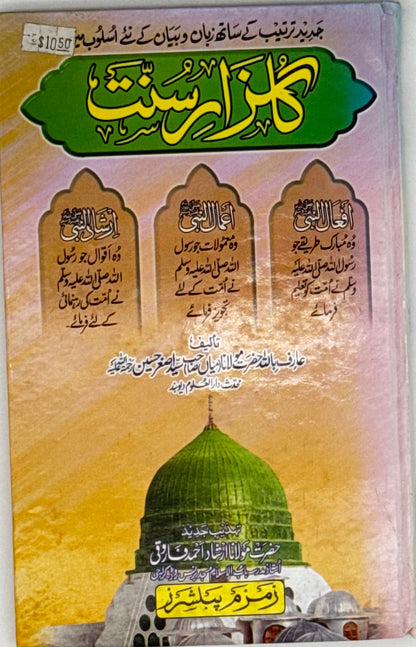 جدید ترتیب کے ساتھ زبان و بیان کے نئے اسلوب میں
$10.50
گلزارِ سنّت
افعال النبی ﷺ
وہ مُبارک طریقے جو
رسول اللہ صلی اللہ علیہ
وسلم نے اُمّت کو تعلیم
فرمائے
اعمال النبی ﷺ
وہ معمولات جو رسول
اللہ صلی اللہ علیہ وسلم
نے اُمّت کے لئے
تجویز فرمائے
ارشاد النبی ﷺ
وہ اقوال جو رسول
اللہ صلی اللہ علیہ وسلم
نے اُمّت کی رہنمائی
کے لئے فرمائے۔
تالیف:
عارف باللہ حضرت مولانا میاں صاحب سید اصغر حسین رحمۃ اللہ علیہ
محدث دارالعلوم دیوبند
تہذیب جدید
حضرت مولانا ارشاد احمد فاروقی
استاذ مدرسہ باب الاسلام مسجد برنس روڈ کراچی
زمزم پبلشرز